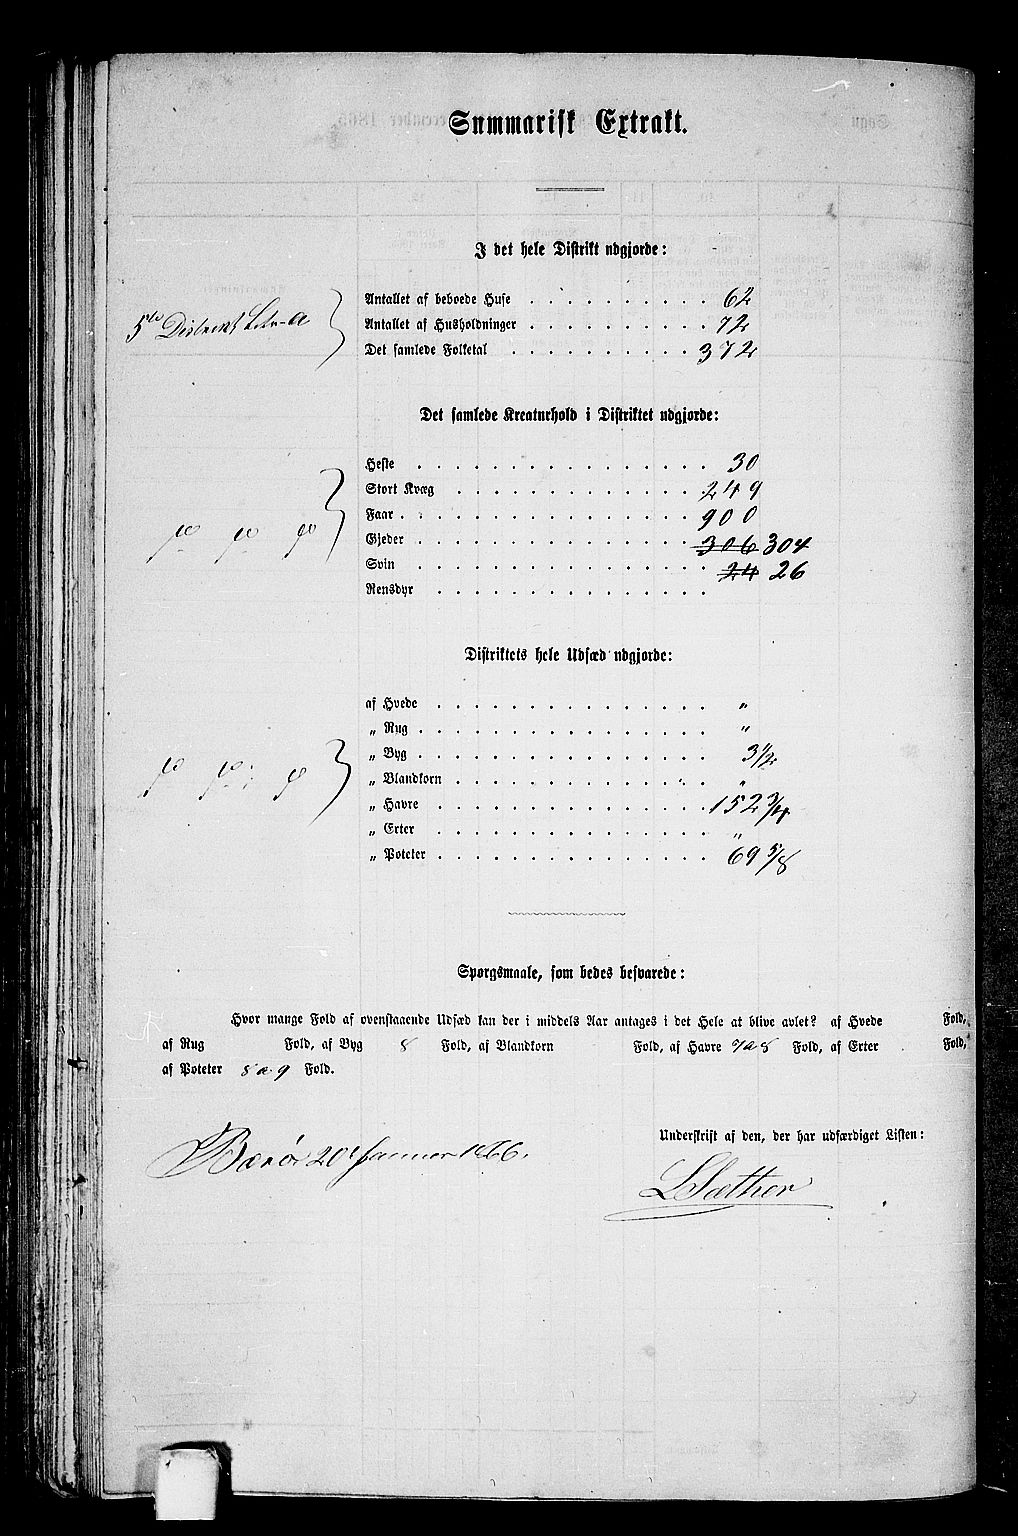 Summarisk Extrakt.
I det hele Distrikt udgjorde:
5te District Litr. a
Antallet af beboede Huse 62
Antallet af Husholdninger 72
Det samlede Folketal 372
Det samlede Kreaturhold i Distriktet udgjorde:
Heste 30
Stort Kvæg 249
Faar 900
Gjeder 306 304
Svin 24 26
Rensdyr
Distriktets hele Udsæd udgjorde:
af Hvede "
„ Rug "
„ Byg 3 1/2
„ Blandkorn "
„ Havre 152 3/4
„ Erter "
„ Poteter 69 5/8
Spørgsmaale, som bedes besvarede:
Hvor mange Fold af ovenstaaende Udsæd kan der i middels Aar antages i det Hele at blive avlet? af Hvede Fold,
af Rug Fold, af Byg 8 Fold, af Blandkorn Fold, af Havre 7 a 8 Fold, af Erter Fold,
af Poteter 8 a 9 Fold.
Underskrift af den, der har udfærdiget Listen:
20 Januar 1866.
L Sæther